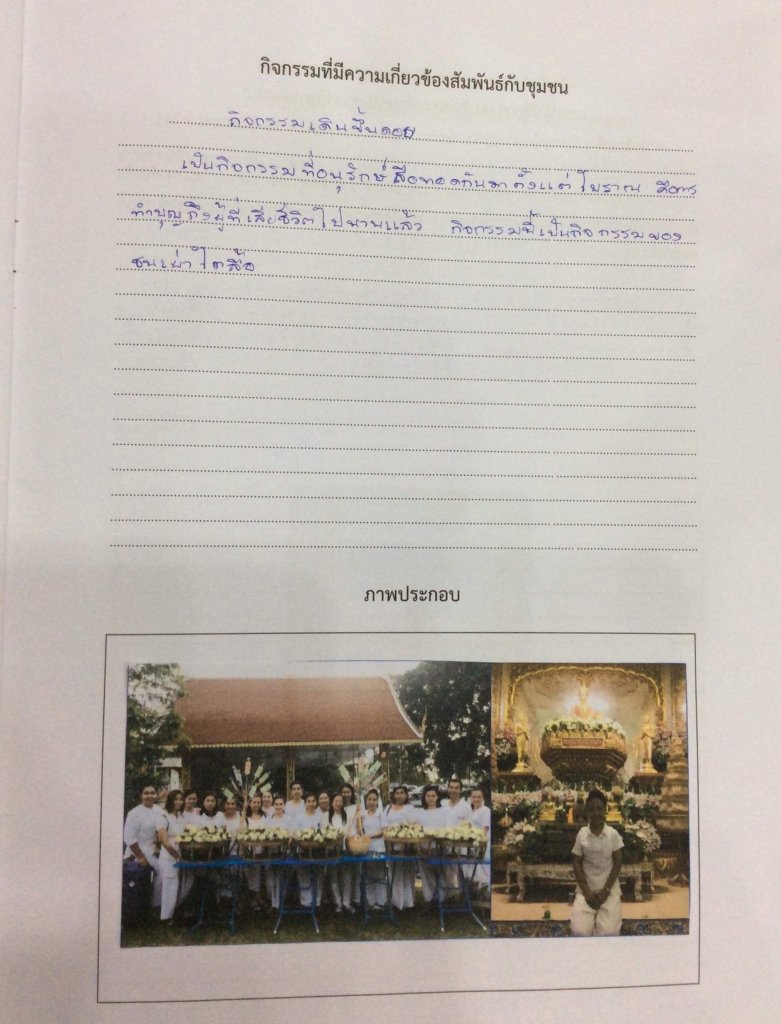 กิจกรรมที่มีความเกี่ยวข้องสัมพันธ์กับชุมชน
กิจกรรมเดินขึ้นดอย
เป็นกิจกรรมที่อนุรักษ์สืบทอดกันมาตั้งแต่โบราณ มีการ
ทำบุญถึงผู้ที่เสียชีวิตไปนานแล้ว กิจกรรมนี้เป็นกิจกรรมของ
ชนเผ่าไตลื้อ
ภาพประกอบ